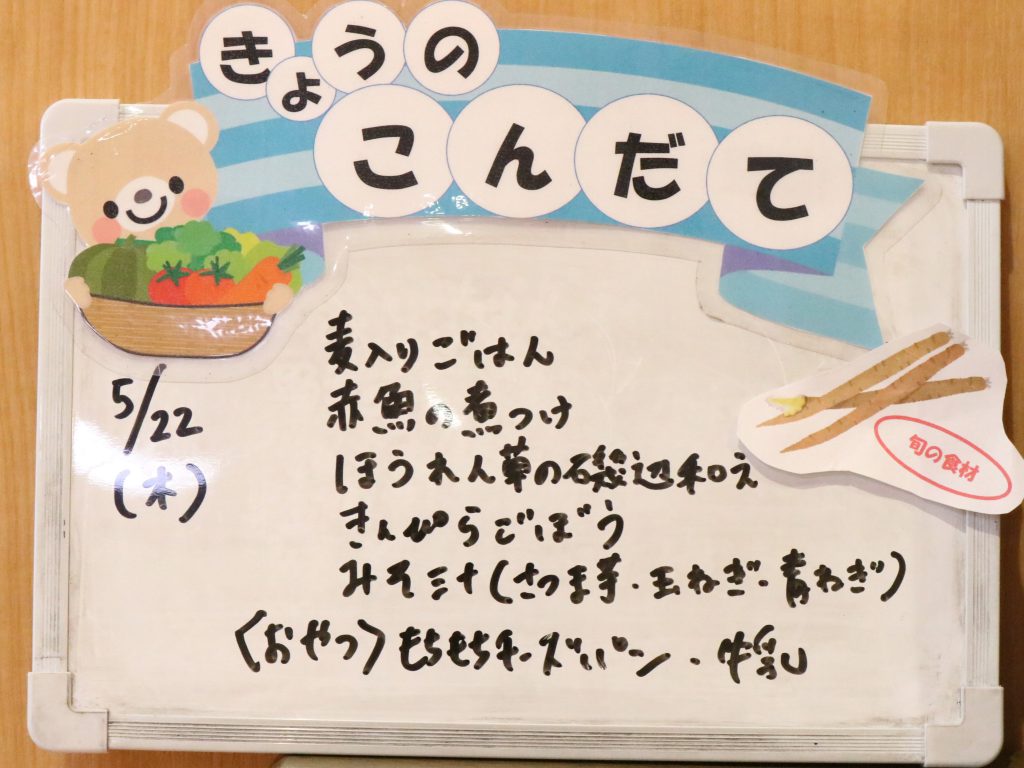 きょうの
こんだて
5/22
(木)
麦入りごはん
赤魚の煮つけ
ほうれん草の磯辺和え
きんぴらごぼう
みそ汁(さつま芋・玉ねぎ・青ねぎ)
〈おやつ〉もちもちチーズパン・牛乳
旬の食材